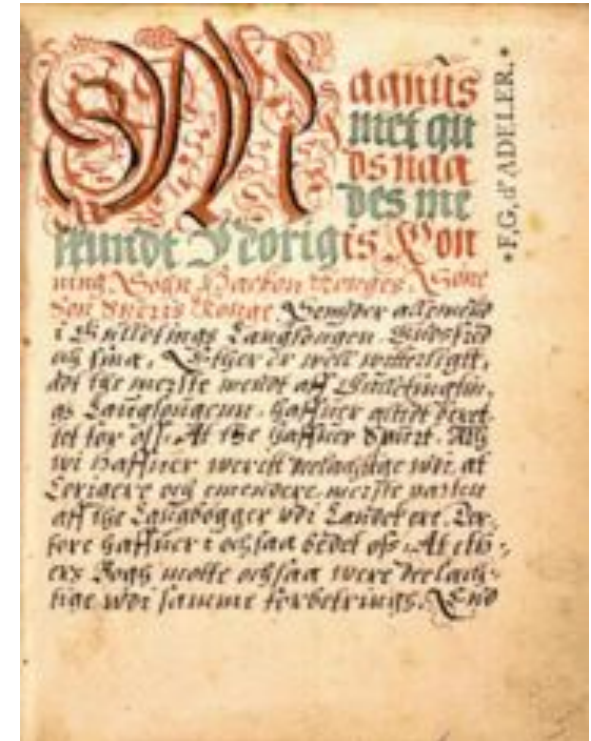 Magnus
met gu
ds naa
des me
kundt Neorigis Kon
ning Sohn Hacken Konges Sone
Son Sueris Konge Sender allemend
i Gullotings Laugsougen. Gudsfred
och sina. Ether er well witterligtt,
dt the meiste mendt aff Gulletingßn,
gs Laugsougenn haffuer best
for oss. At the haffuer
wi haffuer werett deelachtige wdi at
och emendere meiste parten
aff the Laugbogger wdi Landet ere. Der,
fore haffuer i ochsaa bedet oss. At eth,
ers Bogh motte ochsaa were deelach,
tige wdi samme forbetrings. End
*F,G, d'ADELER.*